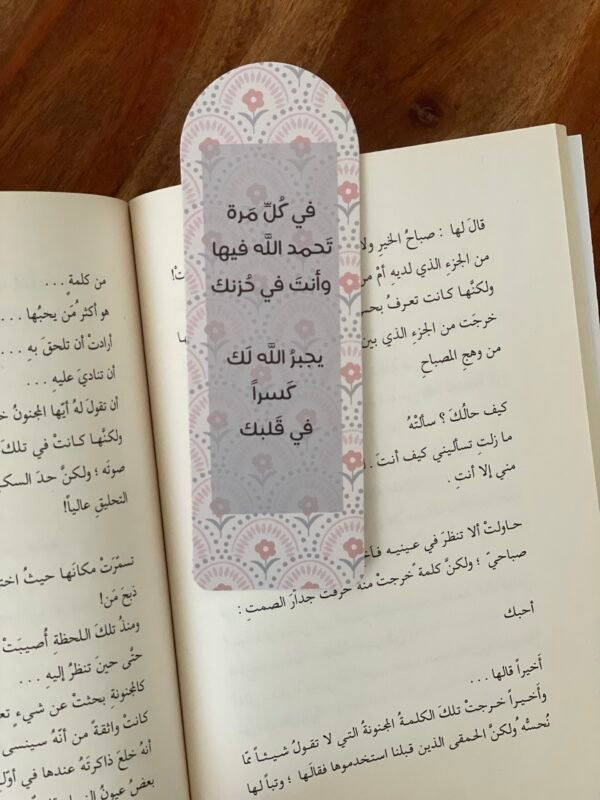 في كُلِّ مَرة
تَحمد اللَّه فيها
وأنتَ في حُزنك
يجبرُ اللَّه لَك
كَسراً
في قَلبك
قالَ لها : صباحُ الخيرِ
من الجزءِ الذي لديهِ أمْ
ولكنَّها كانت تعرفُ
خرجَت من الجزءِ الذي
من وهجِ المصباحِ
كيف حالُكَ ؟ سألتْهُ
ما زلتِ تسأليني كيف أنتَ .
مني إلا أنتِ .
حاولتْ ألا تنظرَ في عينيه
صباحيّ ؛ ولكنَّ كلمةً خرجتْ منه خرقتْ جدارَ الصمتِ :
أحبك
أخيراً قالها . . .
وأخيراً خرجتْ تلكَ الكلمةُ المجنونةُ التي لا تقولُ شيئاً ممّا
نُحسُّه ولكنَّ الحمقى الذين قبلنا استخدموها فقالَها ؛ وتباً لها
من كلمةٍ . . .
هو أكثرُ مَن يحبُّها . . .
أرادتْ أن تلحقَ بهِ . . .
أن تناديَ عليهِ . . .
أن تقولَ لهُ أيّها المجنونُ
ولكنَّها كانتْ في تلكَ
صوته ؛ ولكنَّ حدَ
التحليقِ عالياً!
تسمَّرَتْ مكانَها حيثُ
ذبحَ مَن!
ومنذُ تلكَ اللحظةِ أُصيبَتْ
حتَّى حينَ تنظرُ إليهِ . . .
كالمجنونةِ بحثتْ عن شيءٍ
كانتْ واثقةً من أنَّه سينسى
أنهُ خلعَ ذاكرتَهُ عندها في
بعضُ عيونُ